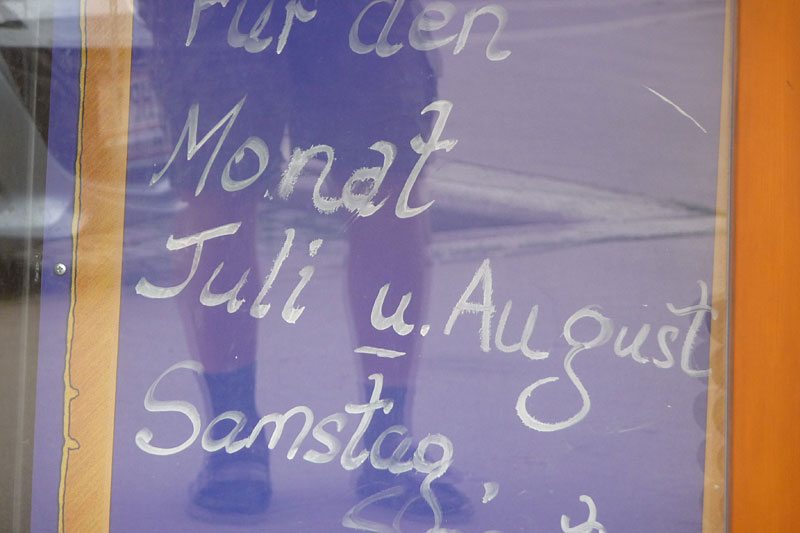 Für den
Monat
Juli u. August
Samstag,